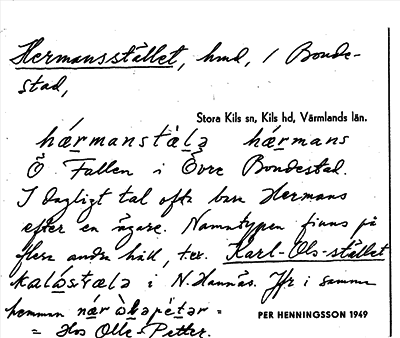 Hermansstället, hmd, i Bonde-
stad,
Stora Kils sn, Kils hd, Värmlands län.
hærmanstælə hærmans
Ö Fallen i Övre Bondestad.
I dagligt tal ofta bara Hermans
efter en ägare. Namntypen finns på
flera andra håll, t.ex. Karl-Ols-stället
kalóstælə i N. Hannäs. Jfr i samma
hemman nær òləpétər =
= Hos Olle-Petter.
PER HENNINGSSON 1949